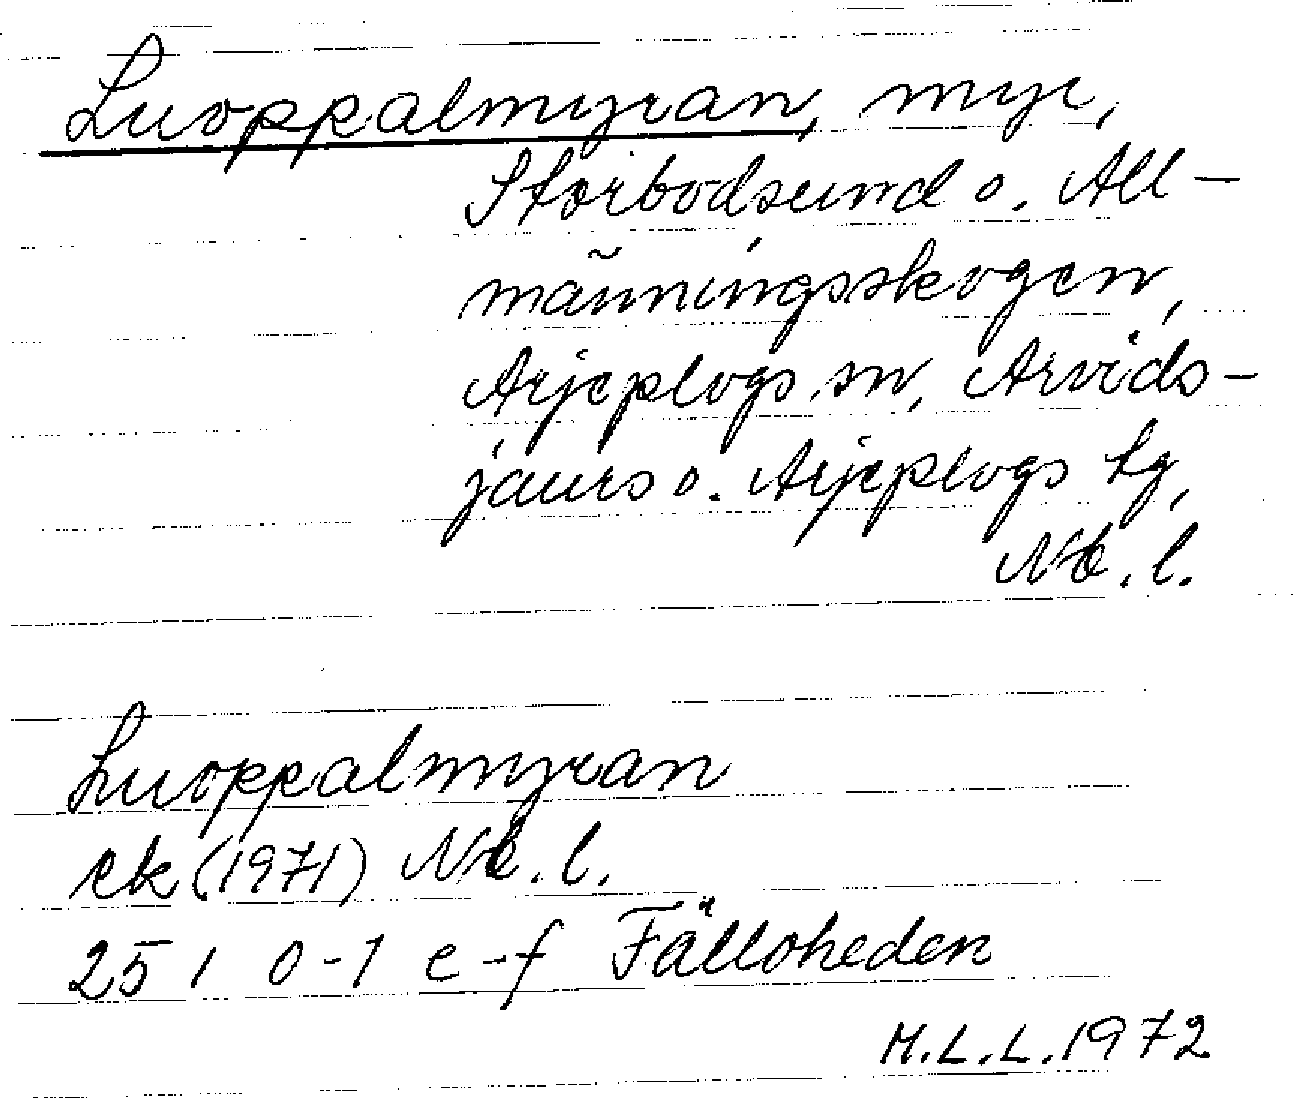 Luoppalmyran, myr,
Storbodsund o. All-
männingsskogen,
Arjeplogs sn, Arvids-
jaurs o. Arjeplogs tg,
Nb. l.
Luoppalmyran
ek (1971) Nb. l.
25 I 0-1 e-f Fälloheden
M.L.L. 1972